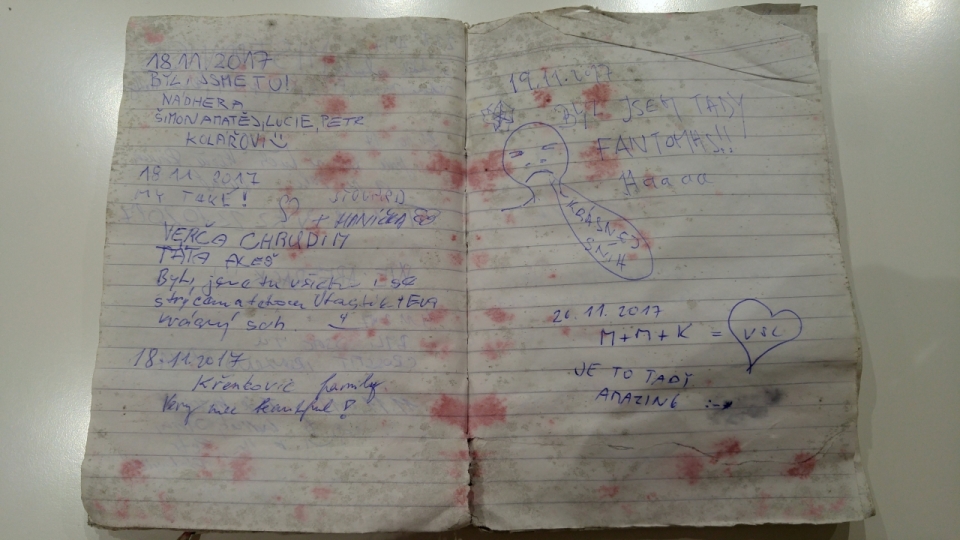 18.11.2017
BYLI JSME TU!
NÁDHERA
ŠIMON A MATĚJ, LUCIE, PETR
KOLAŘOVI
18 11 2017
MY TAKÉ!
+ HANIČKA
VERČA CHRUDIM
TÁTA ALEŠ
Byli jsme tu všichni i se
+ EVA
18.11.2017
family
Very nice beautiful!
19.11.2017
BYL JSEM TADY
FANTOMAS!!
Haaaa
KRÁSNEJ
SNÍH
20.11.2017
M+M+K = VSL
JE TO TADY
AMAZING :-